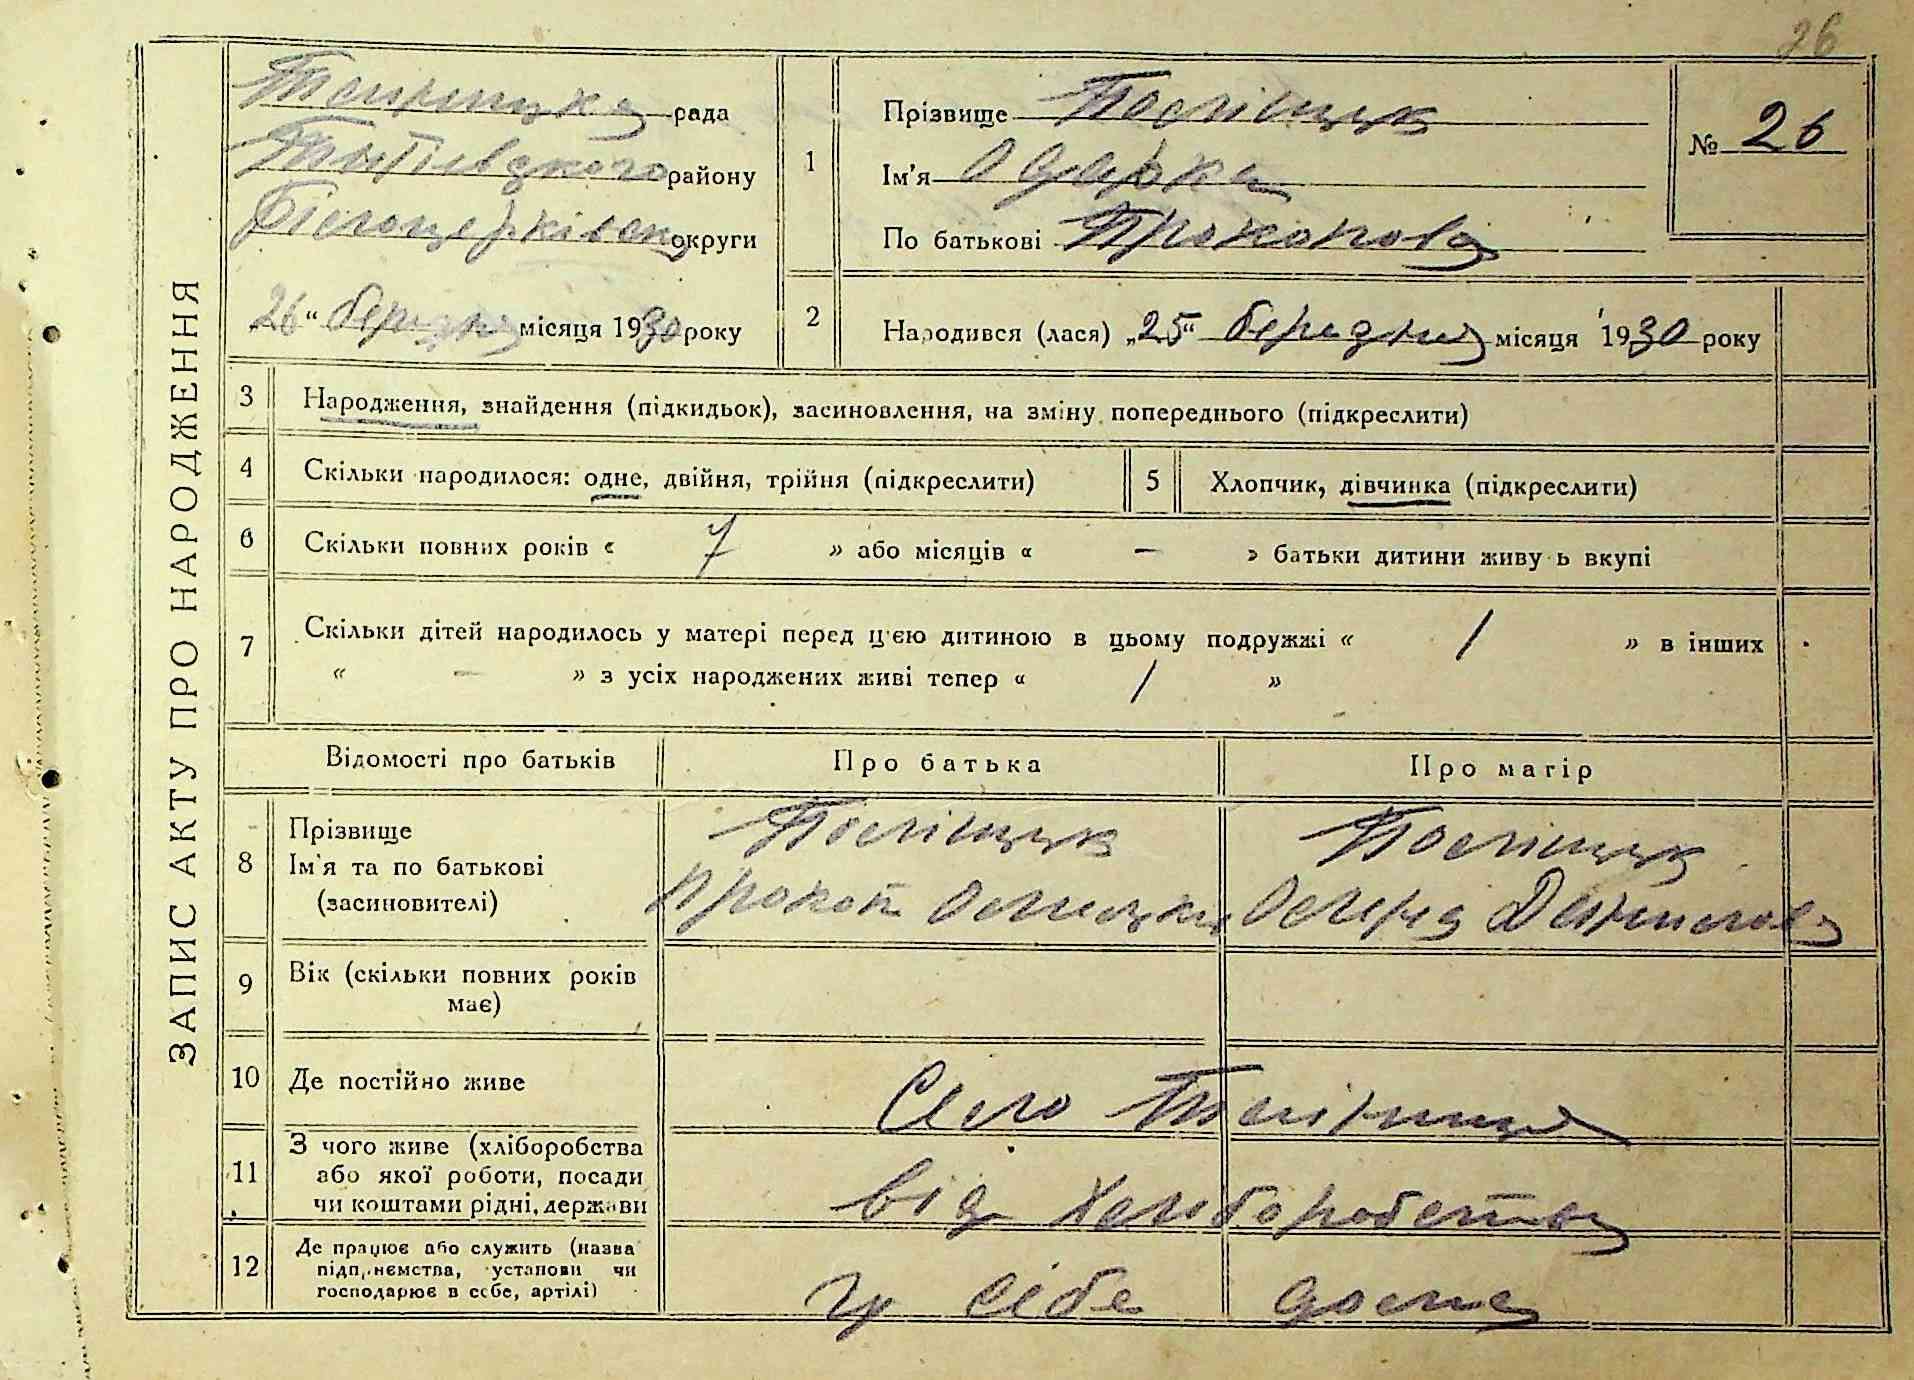 26
ЗАПИС АКТУ ПРО НАРОДЖЕННЯ
рада
району
Білоцерківск округи
„26“ березня місяця 1930 року
1
Прізвище Поліщук
Ім'я Одарка
По батькові Прокопова
№ 26
2
Народився (лася) „25“ березня місяця 1930 року
3 Народження, знайдення (підкидьок), засиновлення, на зміну попереднього (підкреслити)
4 Скільки народилося: одне, двійня, трійня (підкреслити) 5 Хлопчик, дівчинка (підкреслити)
6 Скільки повних років « 7 » або місяців « – » батьки дитини живу ь вкупі
7 Скільки дітей народилось у матері перед ц'єю дитиною в цьому подружжі « 1 » в інших
« – » з усіх народжених живі тепер « 1 »
Відомості про батьків Про батька Про матір
8 Прізвище
Ім'я та по батькові
(засиновителі)
Поліщук
Прокоп
Поліщук
9 Вік (скільки повних років
має)
10 Де постійно живе Село
11 З чого живе (хліборобства
або якої роботи, посади
чи коштами рідні, держави
від
12 Де працює або служить (назва
підприємства, установи чи
господарює в себе, артілі)
у сібе дома